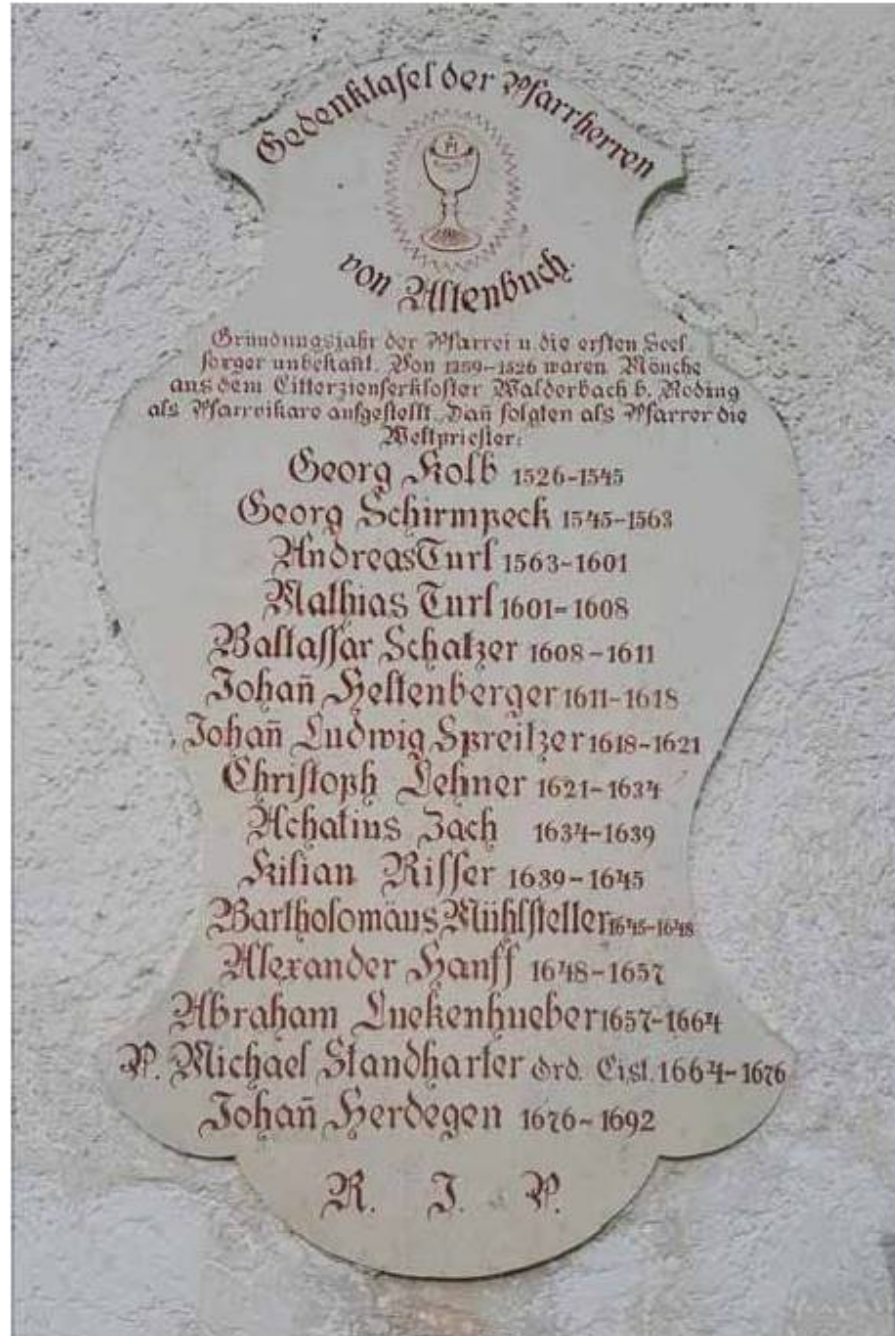 Gedenktafel der Pfarrherren
von Altenbuch.
Gründungsjahr der Pfarrei u. die ersten Seel
sorger unbekañt. Von 1259–1526 waren Mönche
aus dem Citterzienserkloster Walderbach b. Roding
als Pfarrvikare aufgestellt. Dañ folgten als Pfarrer die
Weltpriester:
Georg Kolb 1526–1545
Georg Schirmpeck 1545–1563
Andreas Turl 1563–1601
Mathias Turl 1601–1608
Baltassar Schatzer 1608–1611
Johañ Heltenberger 1611–1618
Johañ Ludwig Spreitzer 1618–1621
Christoph Lehner 1621–1634
Achatius Zach 1634–1639
Kilian Risser 1639–1645
Bartholomäus Mühlsteller 1645–1648
Alexander Hanff 1648–1657
Abraham Luckenhueber 1657–1664
P. Michael Standharter Ord. Cist. 1664–1676
Johañ Herdegen 1676–1692
R. I. P.